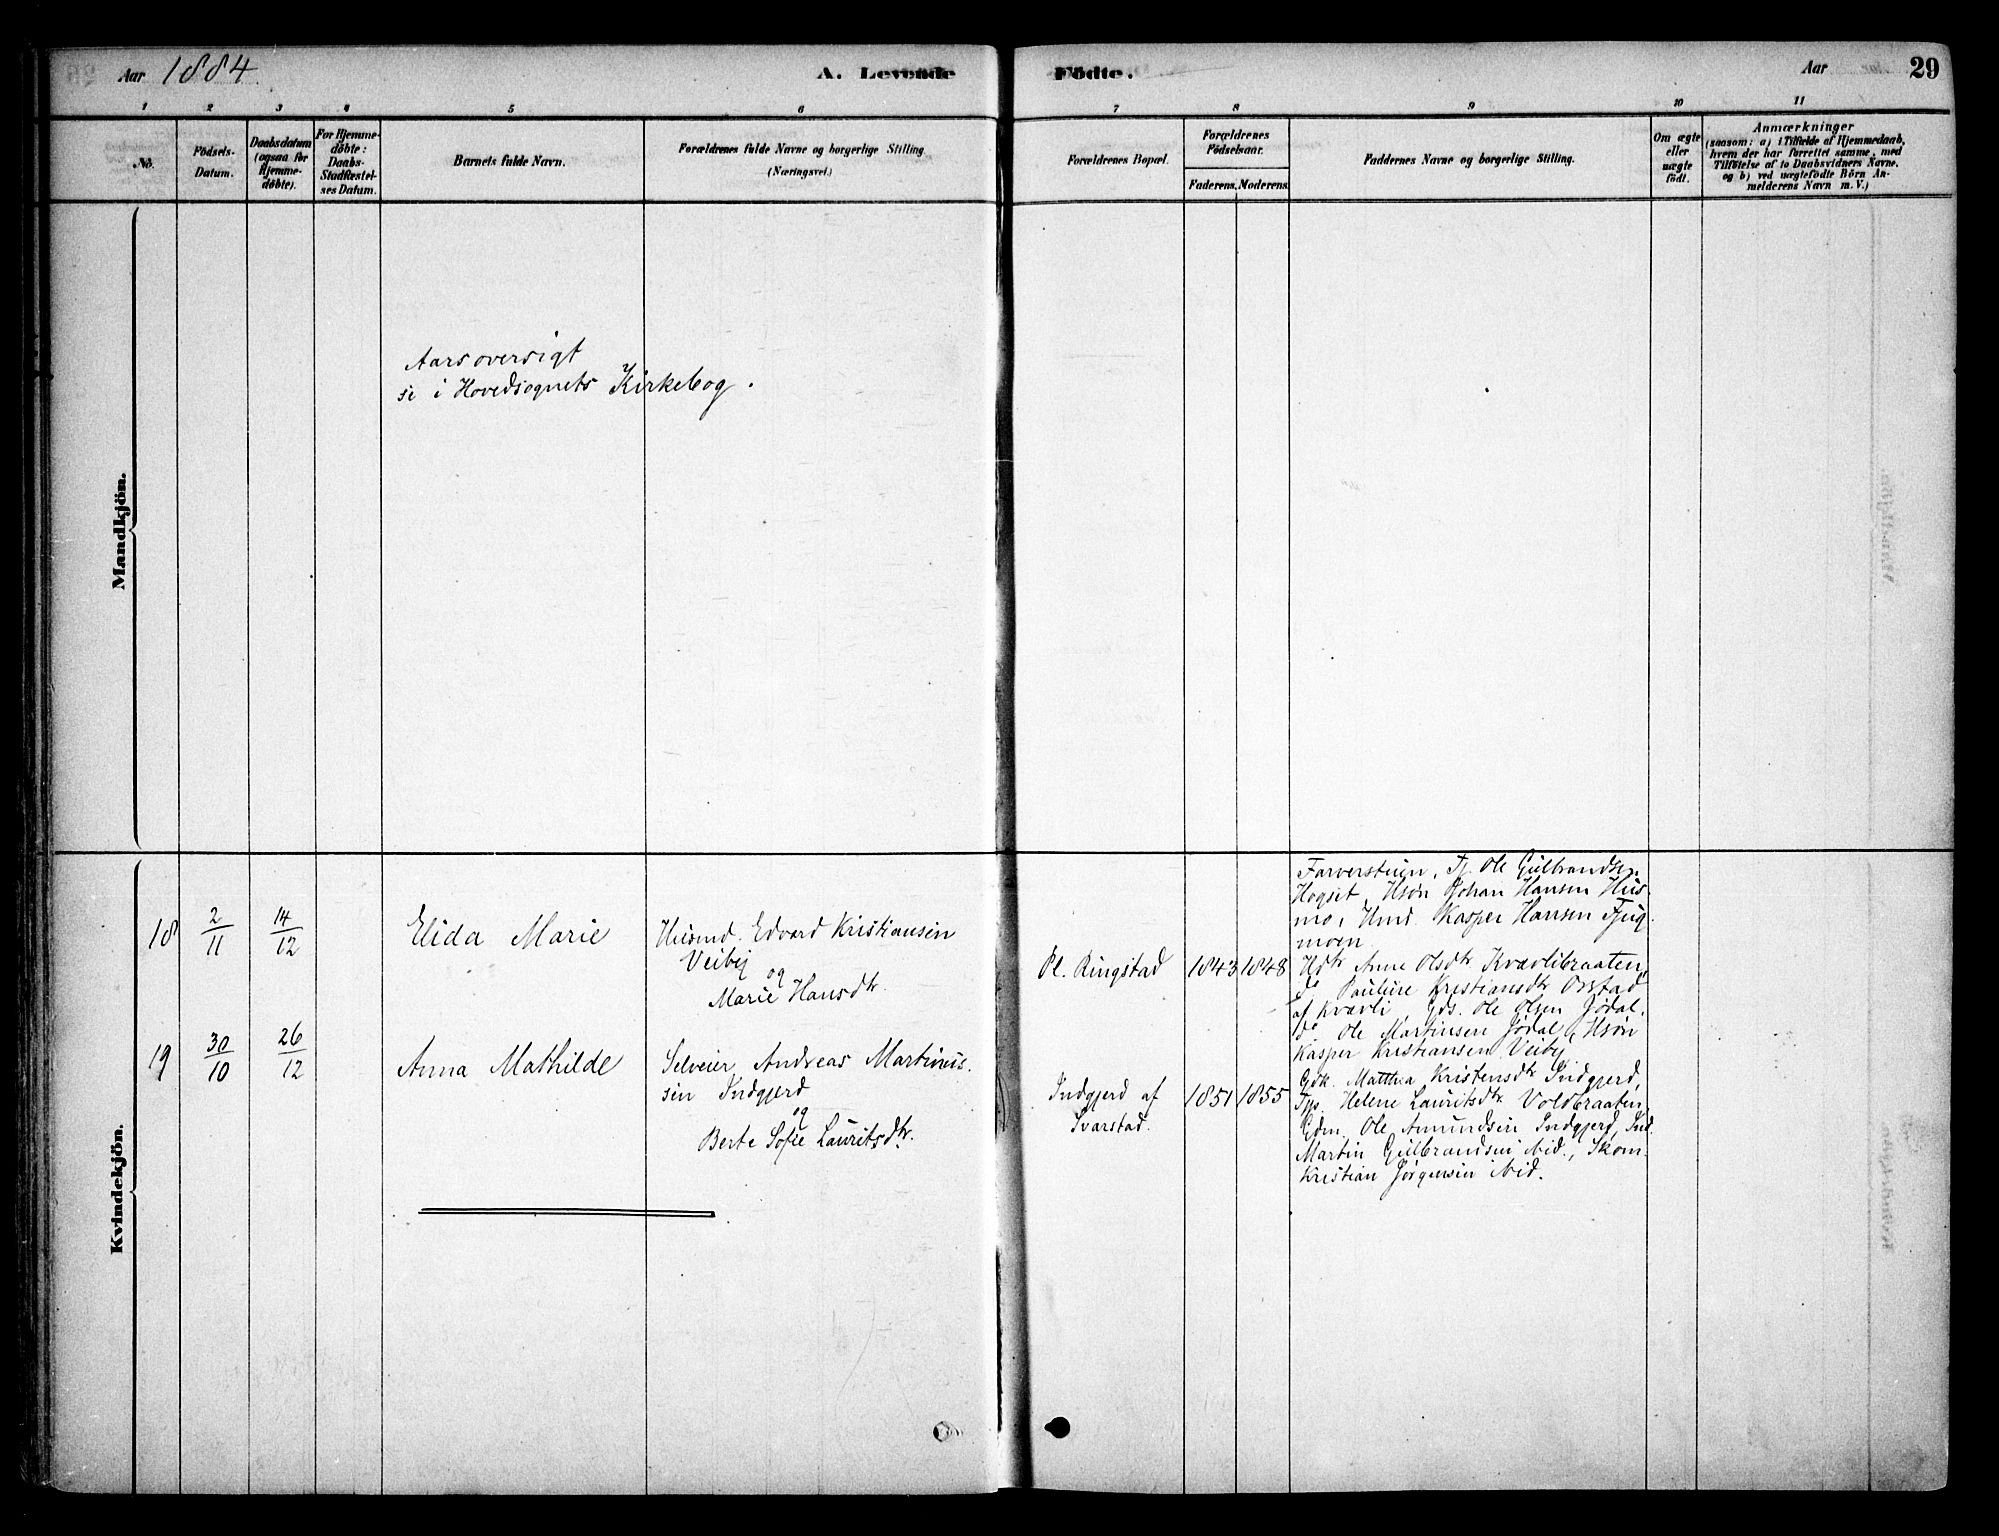 Aar 1884.
A. Levende
Födte.
Aar
29
1
2
3
4
5
6
7
8
9
10
11
No.
Födsels-
Datum.
Daabsdatum
(ogsaa for
Hjemme-
döbte).
For Hjemme-
döbte:
Daabs-
Stadfæstel-
ses Datum.
Barnets fulde Navn.
Forældrenes fulde Navne og borgerlige Stilling.
(Næringsvei.)
Forældrenes Bopæl.
Forældrenes
Födselsaar.
Faderens.
Moderens.
Faddernes Navne og borgerlige Stilling.
Om ægte
eller
uægte
födt.
Anmærkninger
(saasom: a) i Tilfælde af Hjemmedaab,
hvem der har forrettet samme, med
Tilföielse af to Daabsvidners Navne,
og b) ved uægtefödte Börn An-
melderens Navn m. V.)
Mandkjön.
Aarsoversigt
se i Hovedsognets Kirkebog.
Kvindekjön.
18
2/11
14/12
Elida Marie
Husmd. Edvard Kristiansen
Veiby
og
Marie Hansdtr.
Pl. Ringstad
1843
1848
Farverstuen, Tj. Ole Gulbrandsen
Hogset, Hsøn Johan Hansen Hus-
mo, Hmd. Kasper Hansen Fjug-
moen
19
30/10
26/12
Anna Mathilde
Selveier Andreas Martinus-
sen Indgjerd
og
Berte Sofie Lauritsdtr.
Indgjerd af
Svarstad.
1851
1855
Hdtr Anne Olsdtr Kvævlibraaten,
do Pauline Kristiansdtr Opstad
af Kvævli, Gds. Ole Olsen Jødal,
do Ole Martinsen Jødal, Hsøn
Kasper Kristiansen Veiby
Gdk. Matthea Kristensdtr Indgjerd,
Tjp. Helene Lauritsdtr Voldbraaten,
Gdm. Ole Amundsen Indgjerd, Ind.
Martin Gulbrandsen ibid., Skom.
Kristian Jørgensen ibid.